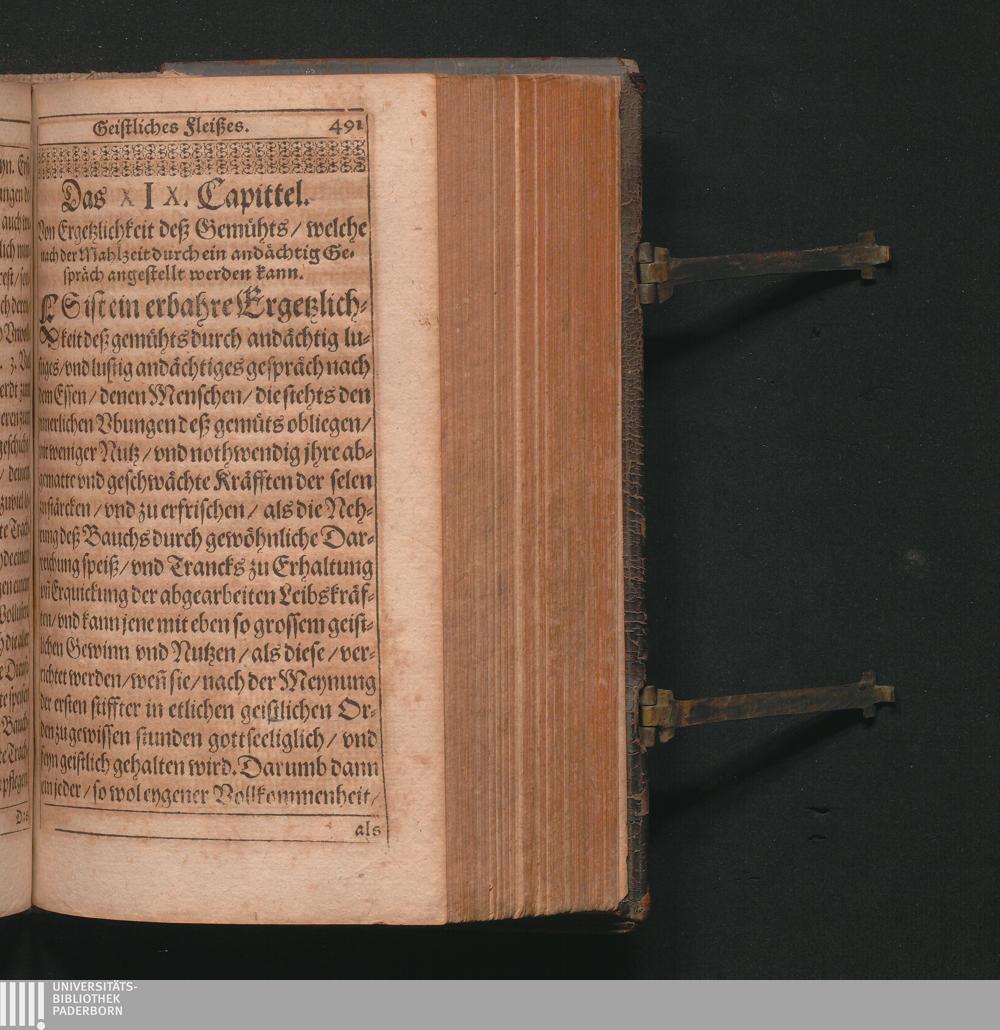 Geistliches Fleißes. 491
Das XIX. Capittel.
Von Ergetzlichkeit deß Gemühts / welche
nach der Mahlzeit durch ein andächtig Ge-
spräch angestellt werden kann.
ES ist ein erbahre Ergetzlich-
keit deß gemühts durch andächtig lu-
stiges / vnd lustig andächtiges gespräch nach
dem Essen / denen Menschen / die stehts den
innerlichen Vbungen deß gemüts obliegen /
nit weniger Nutz / vnd nothwendig jhre ab-
gematte vnd geschwächte Kräfften der selen
zu stärcken / vnd zu erfrischen / als die Neh-
rung deß Bauchs durch gewöhnliche Dar-
reichung speiß / vnd Trancks zu Erhaltung
vn̄ Erquickung der abgearbeiten Leibskräf-
ten / vnd kann jene mit eben so grossem geist-
lichen Gewinn vnd Nutzen / als diese / ver-
richtet werden / weñ sie / nach der Meynung
der ersten stiffter in etlichen geistlichen Or-
den zu gewissen stunden gottseeliglich / vnd
feyn geistlich gehalten wird. Darumb dann
ein jeder / so wol eygener Vollkommenheit /
als
Das
UNIVERSITÄTS-
BIBLIOTHEK
PADERBORN